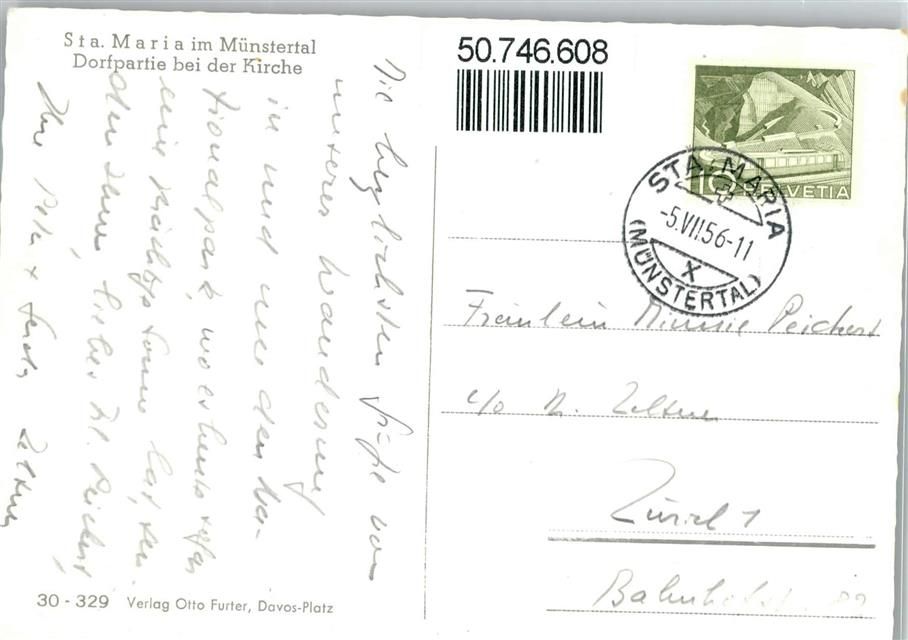 Sta. Maria im Münstertal
Dorfpartie bei der Kirche
50.746.608
10 HELVETIA
STA. MARIA
-5.VII.56-11
X
(MÜNSTERTAL)
Die herzlichsten Grüße von
unserer Wanderung
in und um den Na-
tionalpark, wo es heute
eine
den Ihnen, liebes Frl. Reichert,
Ihre &
Fräulein Minnie Reichert
c/o N. Zeltner
Zürich 1
Bahnhofstr.
30 - 329 Verlag Otto Furter, Davos-Platz